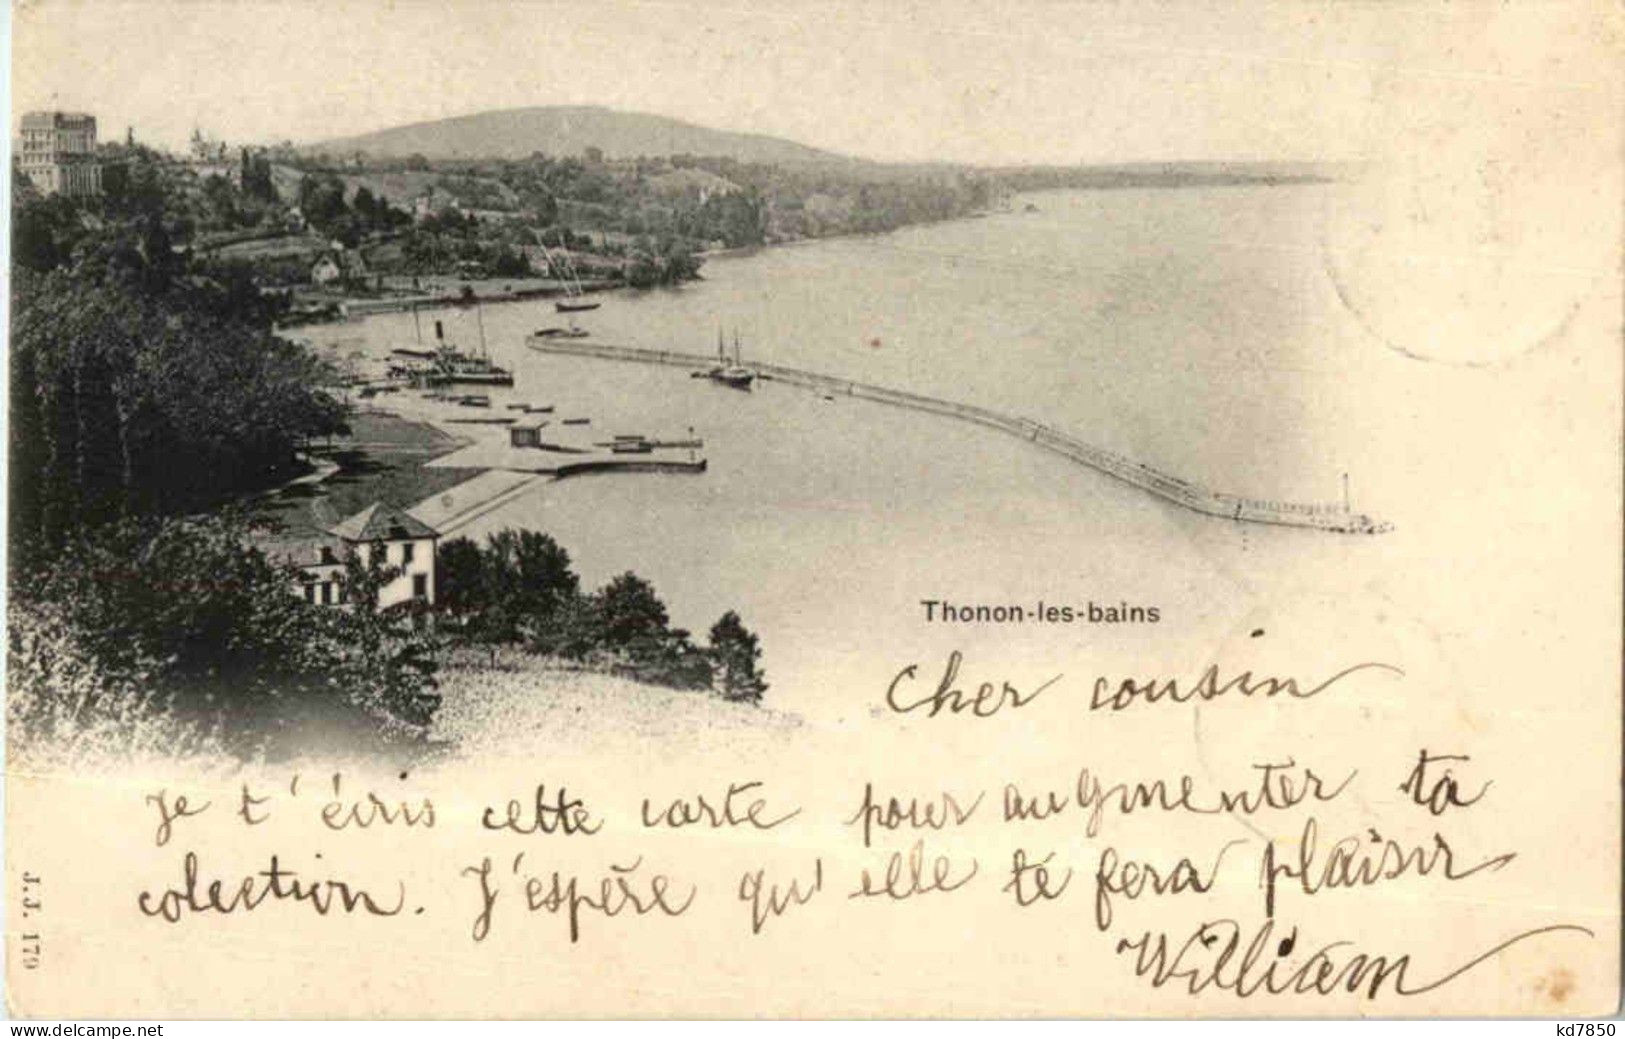 Thonon-les-bains
Cher cousin
Je t'écris cette carte pour augmenter ta
colection. J'espère qu'elle té fera plaisir
William
J.J. 179
delcampe.net
kd7850